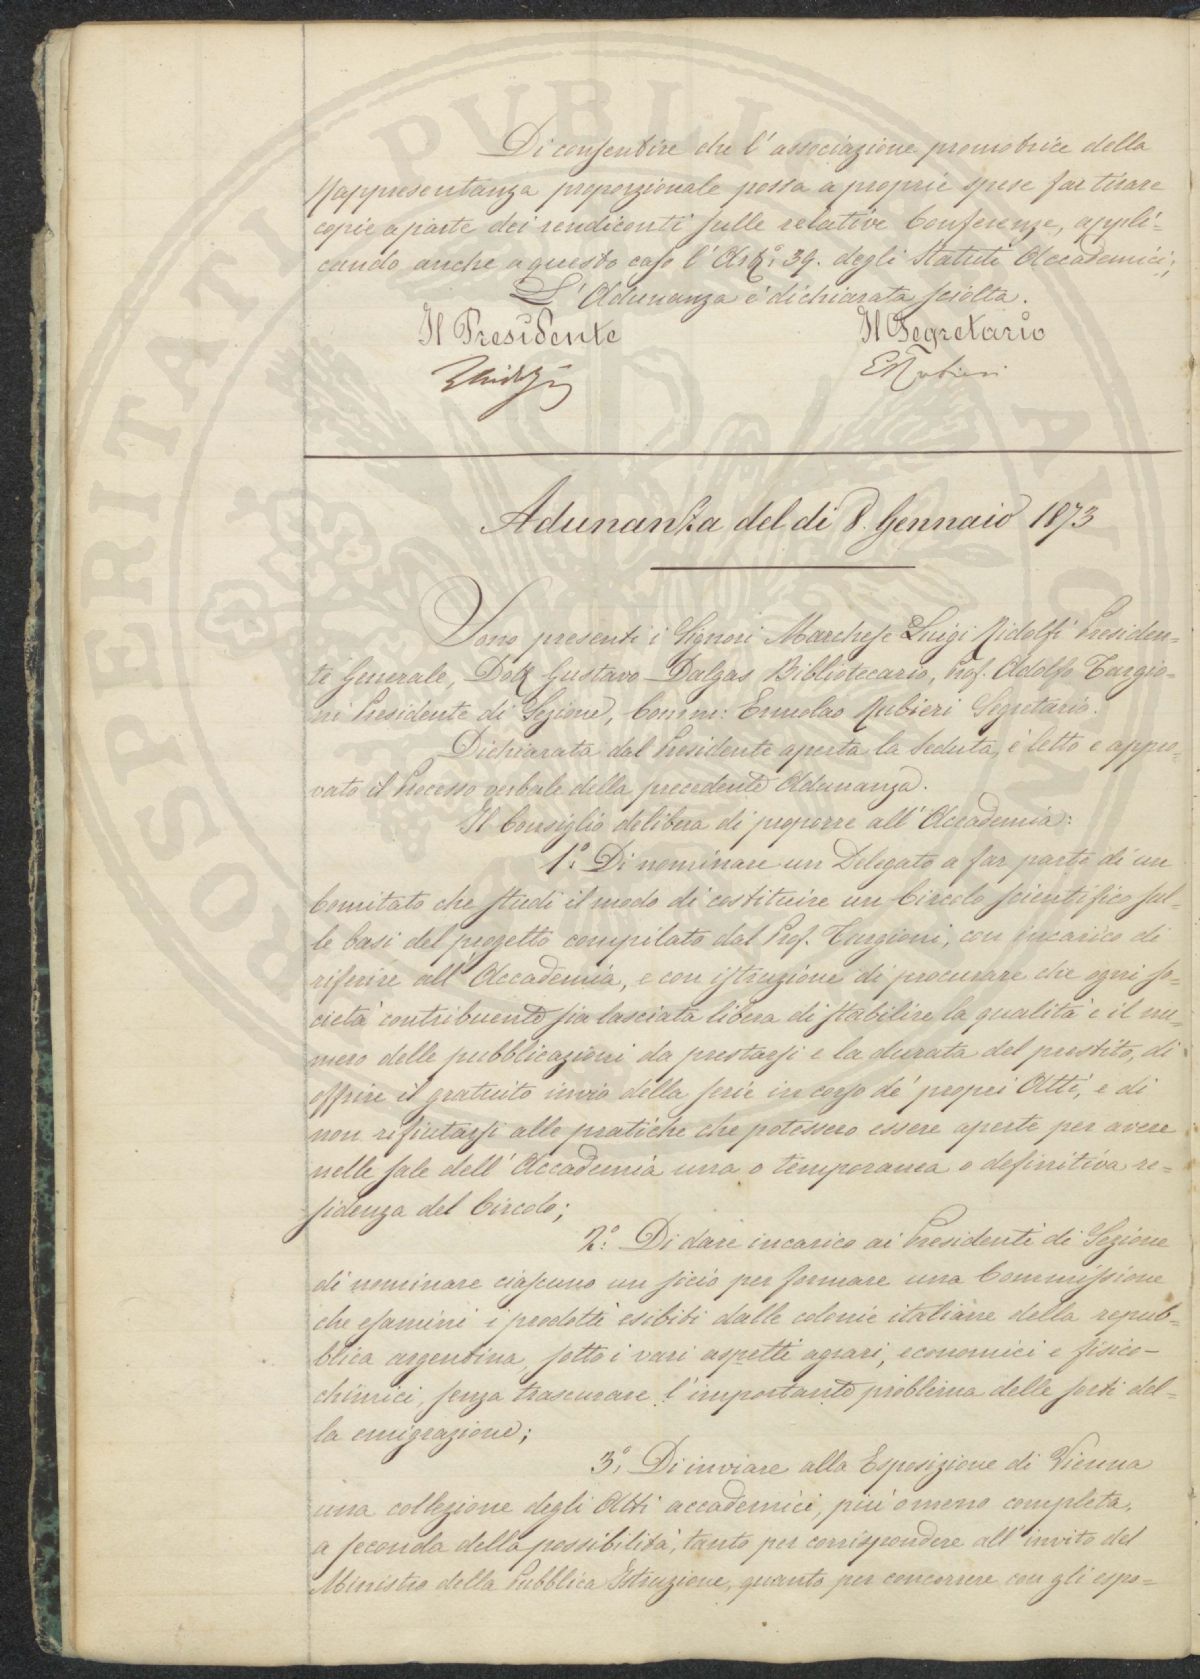 Di consentire che l'associazione promotrice della
Rappresentanza proporzionale possa a proprie spese far tirare
copie a parte dei rendiconti sulle relative Conferenze, appli=
cando anche a questo caso l'Art.° 39. degli Statuti Accademici;
L'Adunanza è dichiarata sciolta.
Il Presidente Il Segretario
LRidolfi ERubieri
Adunanza del di 8. Gennaio 1873
Sono presenti i Signori Marchese Luigi Ridolfi Presiden=
te Generale, Dott Gustavo Dalgas Bibliotecario, Prof. Adolfo Targio=
ni Presidente di Sezione, Comm: Ermolao Rubieri Segretario.
Dichiarata dal Presidente aperta la Seduta, è letto e appro=
vato il Processo verbale della precedente Adunanza.
Il Consiglio delibera di proporre all'Accademia:
1°: Di nominare un Delegato a far parte di un
Comitato che studi il modo di costituire un Circolo scientifico sul=
le basi del progetto compilato dal Prof. Targioni, con incarico di
riferire all'Accademia, e con istruzione di procurare che ogni so=
cietà contribuente sia lasciata libera di stabilire la qualità e il nu=
mero delle pubblicazioni da prestarsi e la durata del prestito, di
offrire il gratuito invio della serie in corso de' propri Atti, e di
non rifiutarsi alle pratiche che potessero essere aperte per avere
nelle sale dell'Accademia una o temporanea o definitiva re=
sidenza del Circolo;
2°: Di dare incarico ai Presidenti di Sezione
di nominare ciascuno un socio per formare una Commissione
che esamini i prodotti esibiti dalle colonie italiane della repub=
blica argentina, sotto i vari aspetti agrari, economici e fisico=
chimici, senza trascurare l'importante problema delle sorti del=
la emigrazione;
3°: Di inviare alla Esposizione di Vienna
una collezione degli Atti accademici, più o meno completa,
a seconda della possibilità, tanto per corrispondere all'invito del
Ministro della Pubblica Istruzione, quanto per concorrere con gli espo=